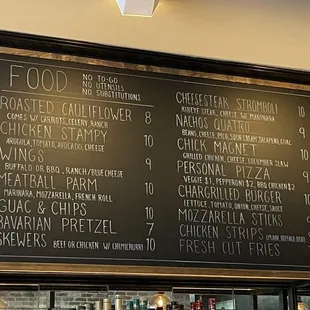 FOOD
NO TO-GO
NO UTENSILS
NO SUBSTITUTIONS
ROASTED CAULIFLOWER 8
COMES W/ CARROTS, CELERY, RANCH
CHICKEN STAMPY 10
ARUGULA, TOMATO, AVOCADO, CHEESE
WINGS 9
BUFFALO OR BBQ, RANCH/BLUE CHEESE
MEATBALL PARM 10
MARINARA, MOZZARELLA, FRENCH ROLL
GUAC & CHIPS 10
BAVARIAN PRETZEL 7
SKEWERS BEEF OR CHICKEN W/ CHIMICHURRI 10
CHEESESTEAK STROMBOLI 10
RIBEYE STEAK, CHEESE W/ MARINARA
NACHOS QUATRO 9
BEANS, CHEESE, PICO, SOUR CREAM, SALSA, GUAC
CHICK MAGNET 10
GRILLED CHICKEN, CHEESE, CUCUMBER SLAW
PERSONAL PIZZA 9
VEGGIE $1, PEPPERONI $2, BBQ CHICKEN $2
CHARGRILLED BURGER 10
LETTUCE, TOMATO, ONION, CHEESE, SAUCE
MOZZARELLA STICKS 9
CHICKEN STRIPS (PLAIN, BUFFALO, BBQ) 9
FRESH CUT FRIES